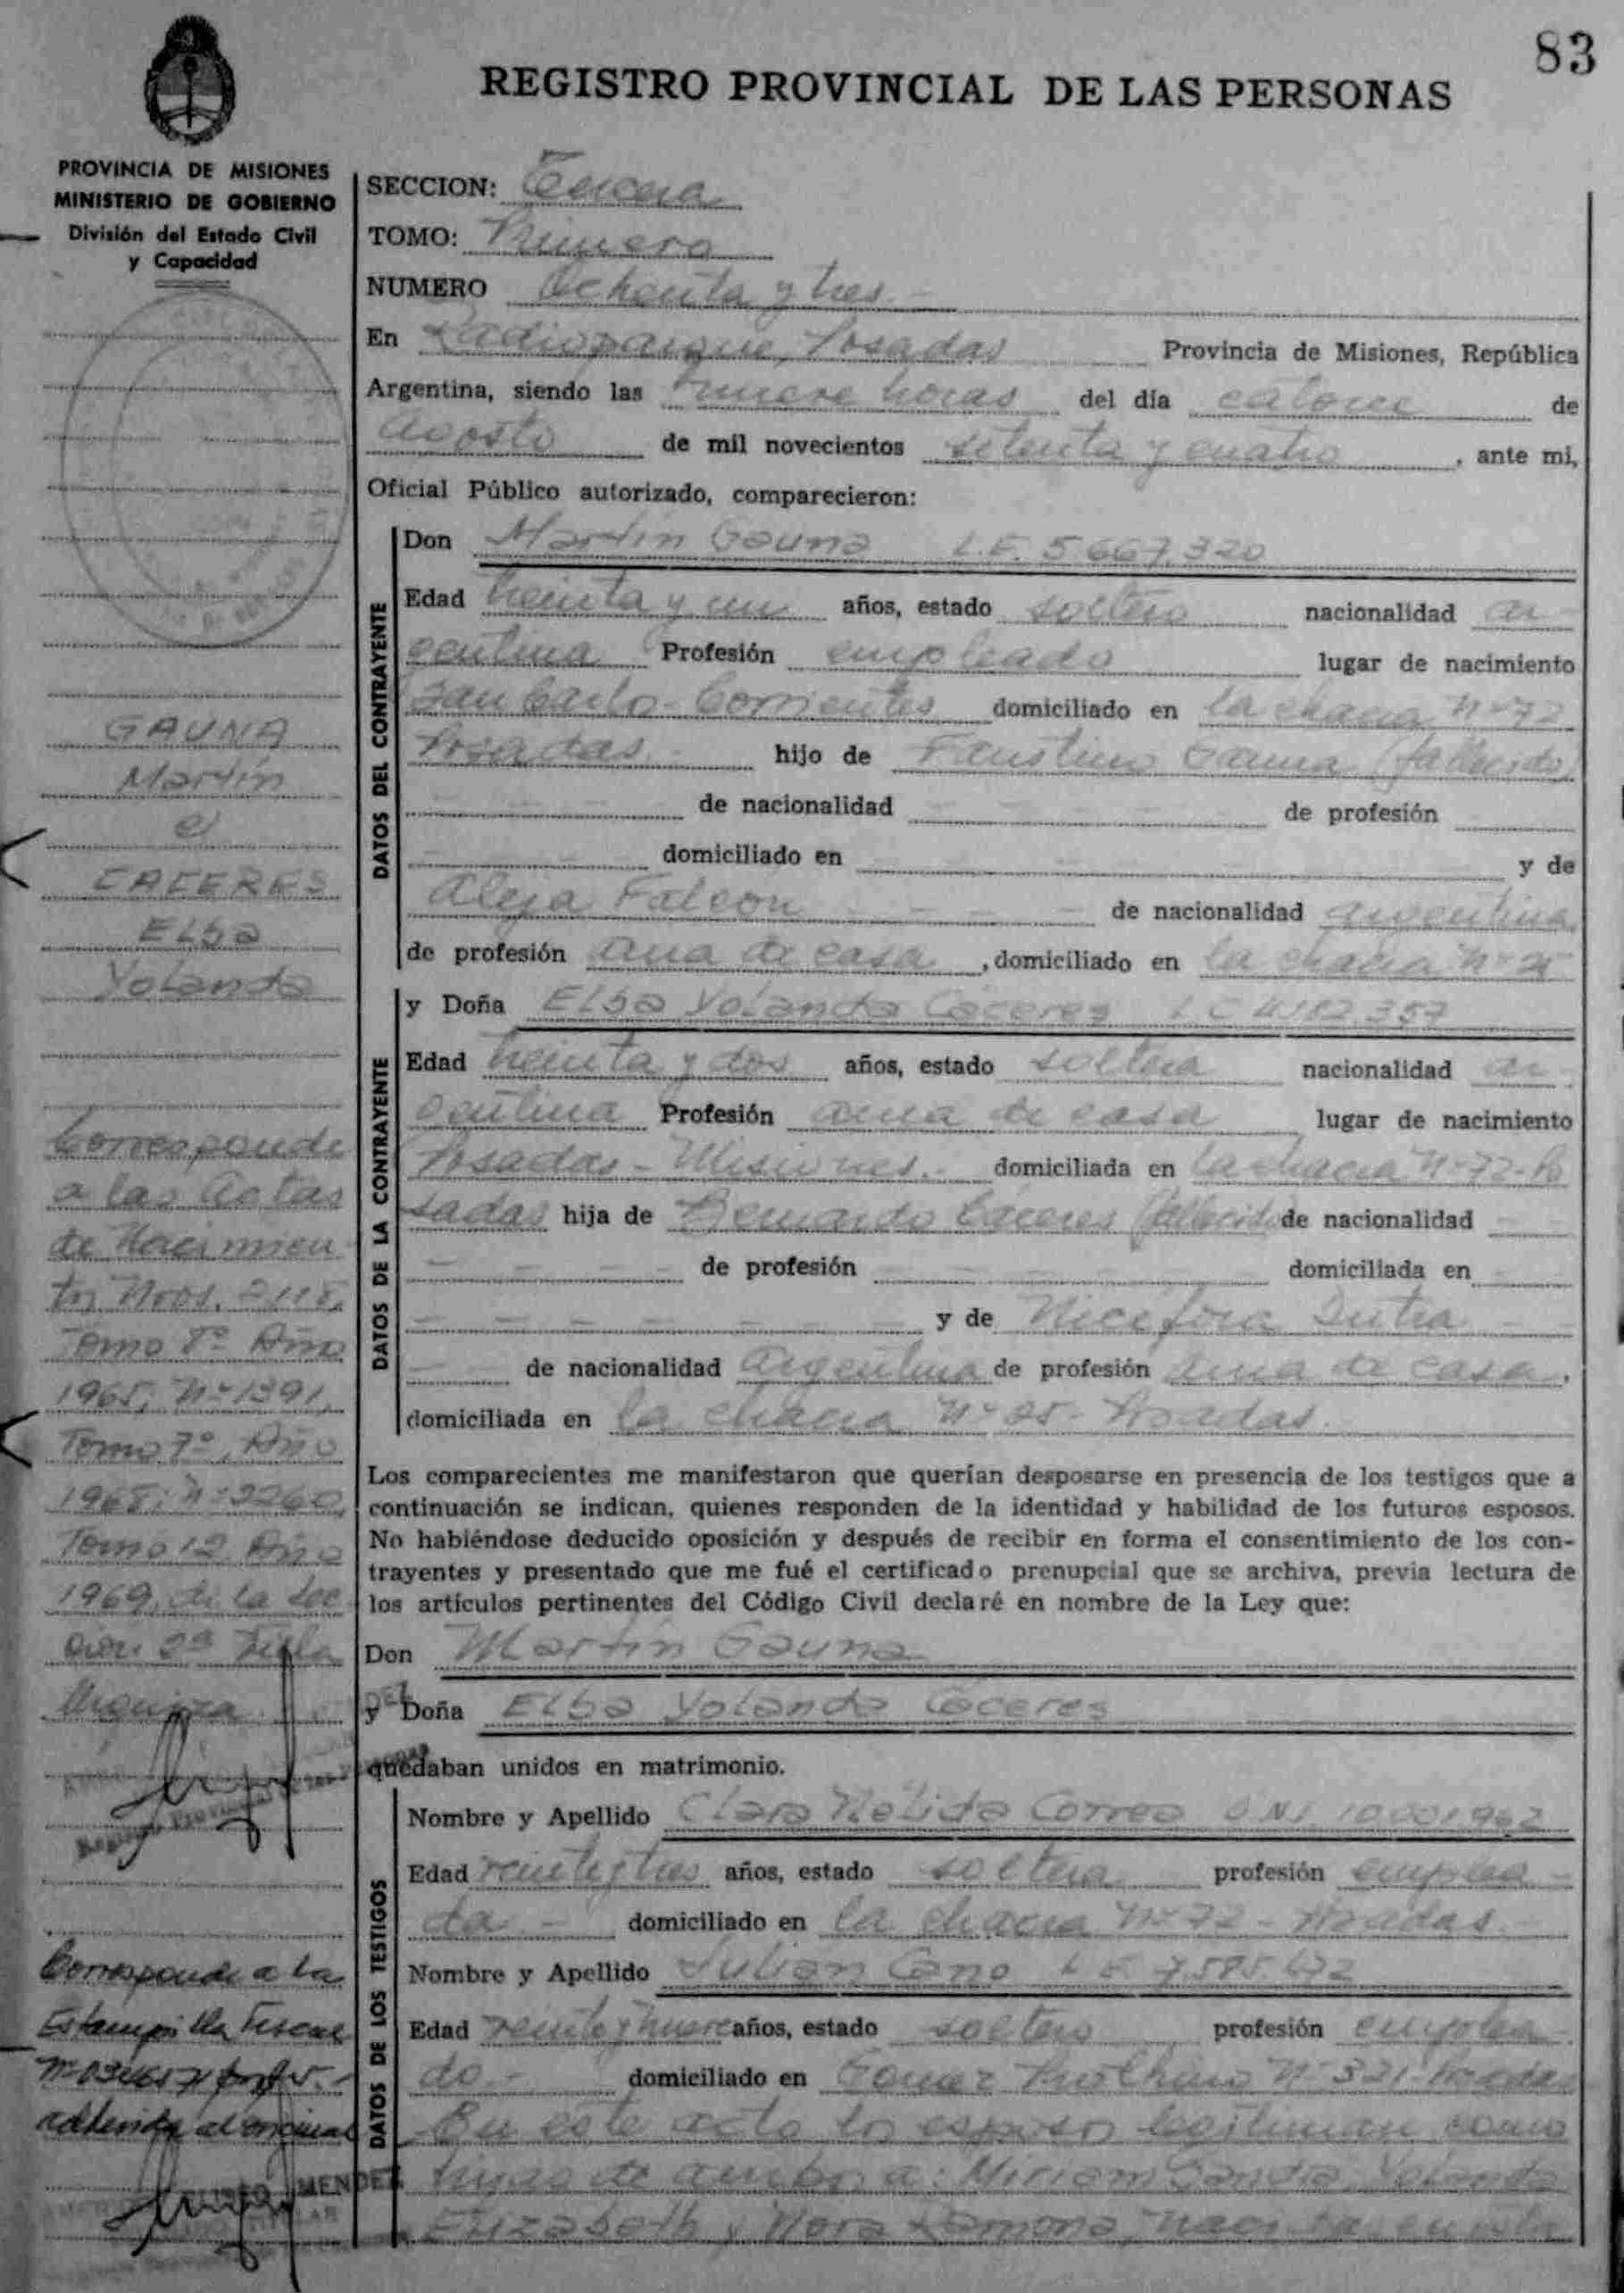 83
REGISTRO PROVINCIAL DE LAS PERSONAS
PROVINCIA DE MISIONES
MINISTERIO DE GOBIERNO
División del Estado Civil
y Capacidad
GAUNA
Martín
c/
CACERES
Elba
Yolanda
Corresponde
a las actas
de Nacimien
tos Nros. 2118,
Tomo 8º Año
1965, Nº 1391,
Tomo 7º, Año
1968; Nº 2260,
Tomo 12 Año
1969, de la Sec
ción 2ª Villa
Urquiza
Corresponde a la
Estampilla Fiscal
adherida al original
MENDEZ
SECCION: Tercera
TOMO: Primero
NUMERO Ochenta y tres
En Radioparque, Posadas Provincia de Misiones, República
Argentina, siendo las nueve horas del día catorce de
agosto de mil novecientos setenta y cuatro, ante mi,
Oficial Público autorizado, comparecieron:
DATOS DEL CONTRAYENTE
Don Martín Gauna L.E. 5.667.320
Edad treinta y un años, estado soltero nacionalidad ar
gentina Profesión empleado lugar de nacimiento
San Carlos - Corrientes domiciliado en la chacra Nº 72
Posadas hijo de Faustino Gauna (fallecido)
de nacionalidad de profesión
domiciliado en y de
Aleja Falcon de nacionalidad argentina
de profesión ama de casa, domiciliado en la chacra Nº 25
DATOS DE LA CONTRAYENTE
y Doña Elba Yolanda Cáceres L.C. 4.182.357
Edad treinta y dos años, estado soltera nacionalidad ar
gentina Profesión ama de casa lugar de nacimiento
Posadas - Misiones.- domiciliada en la chacra Nº 72 - Po
sadas hija de Bernardo Cáceres (fallecido) de nacionalidad
de profesión domiciliada en
y de Nicéfora Dutra
de nacionalidad argentina de profesión ama de casa,
domiciliada en la chacra Nº 25 - Posadas.
Los comparecientes me manifestaron que querían desposarse en presencia de los testigos que a
continuación se indican, quienes responden de la identidad y habilidad de los futuros esposos.
No habiéndose deducido oposición y después de recibir en forma el consentimiento de los con-
trayentes y presentado que me fué el certificado prenupcial que se archiva, previa lectura de
los artículos pertinentes del Código Civil declaré en nombre de la Ley que:
Don Martín Gauna
y Doña Elba Yolanda Cáceres
quedaban unidos en matrimonio.
DATOS DE LOS TESTIGOS
Nombre y Apellido Clara Nelida Correa D.N.I. 10.001.962
Edad veintitres años, estado soltera profesión emplea
da - domiciliado en la chacra Nº 72 - Posadas.
Nombre y Apellido Julian Cano L.E. 7.585.672
Edad veintinueve años, estado soltero profesión emplea
do.- domiciliado en Nº 321 Posadas
En este acto los esposos legitiman como
hijas de ambos a: Miriam Sandra, Yolanda
Elizabeth y Nora Ramona,